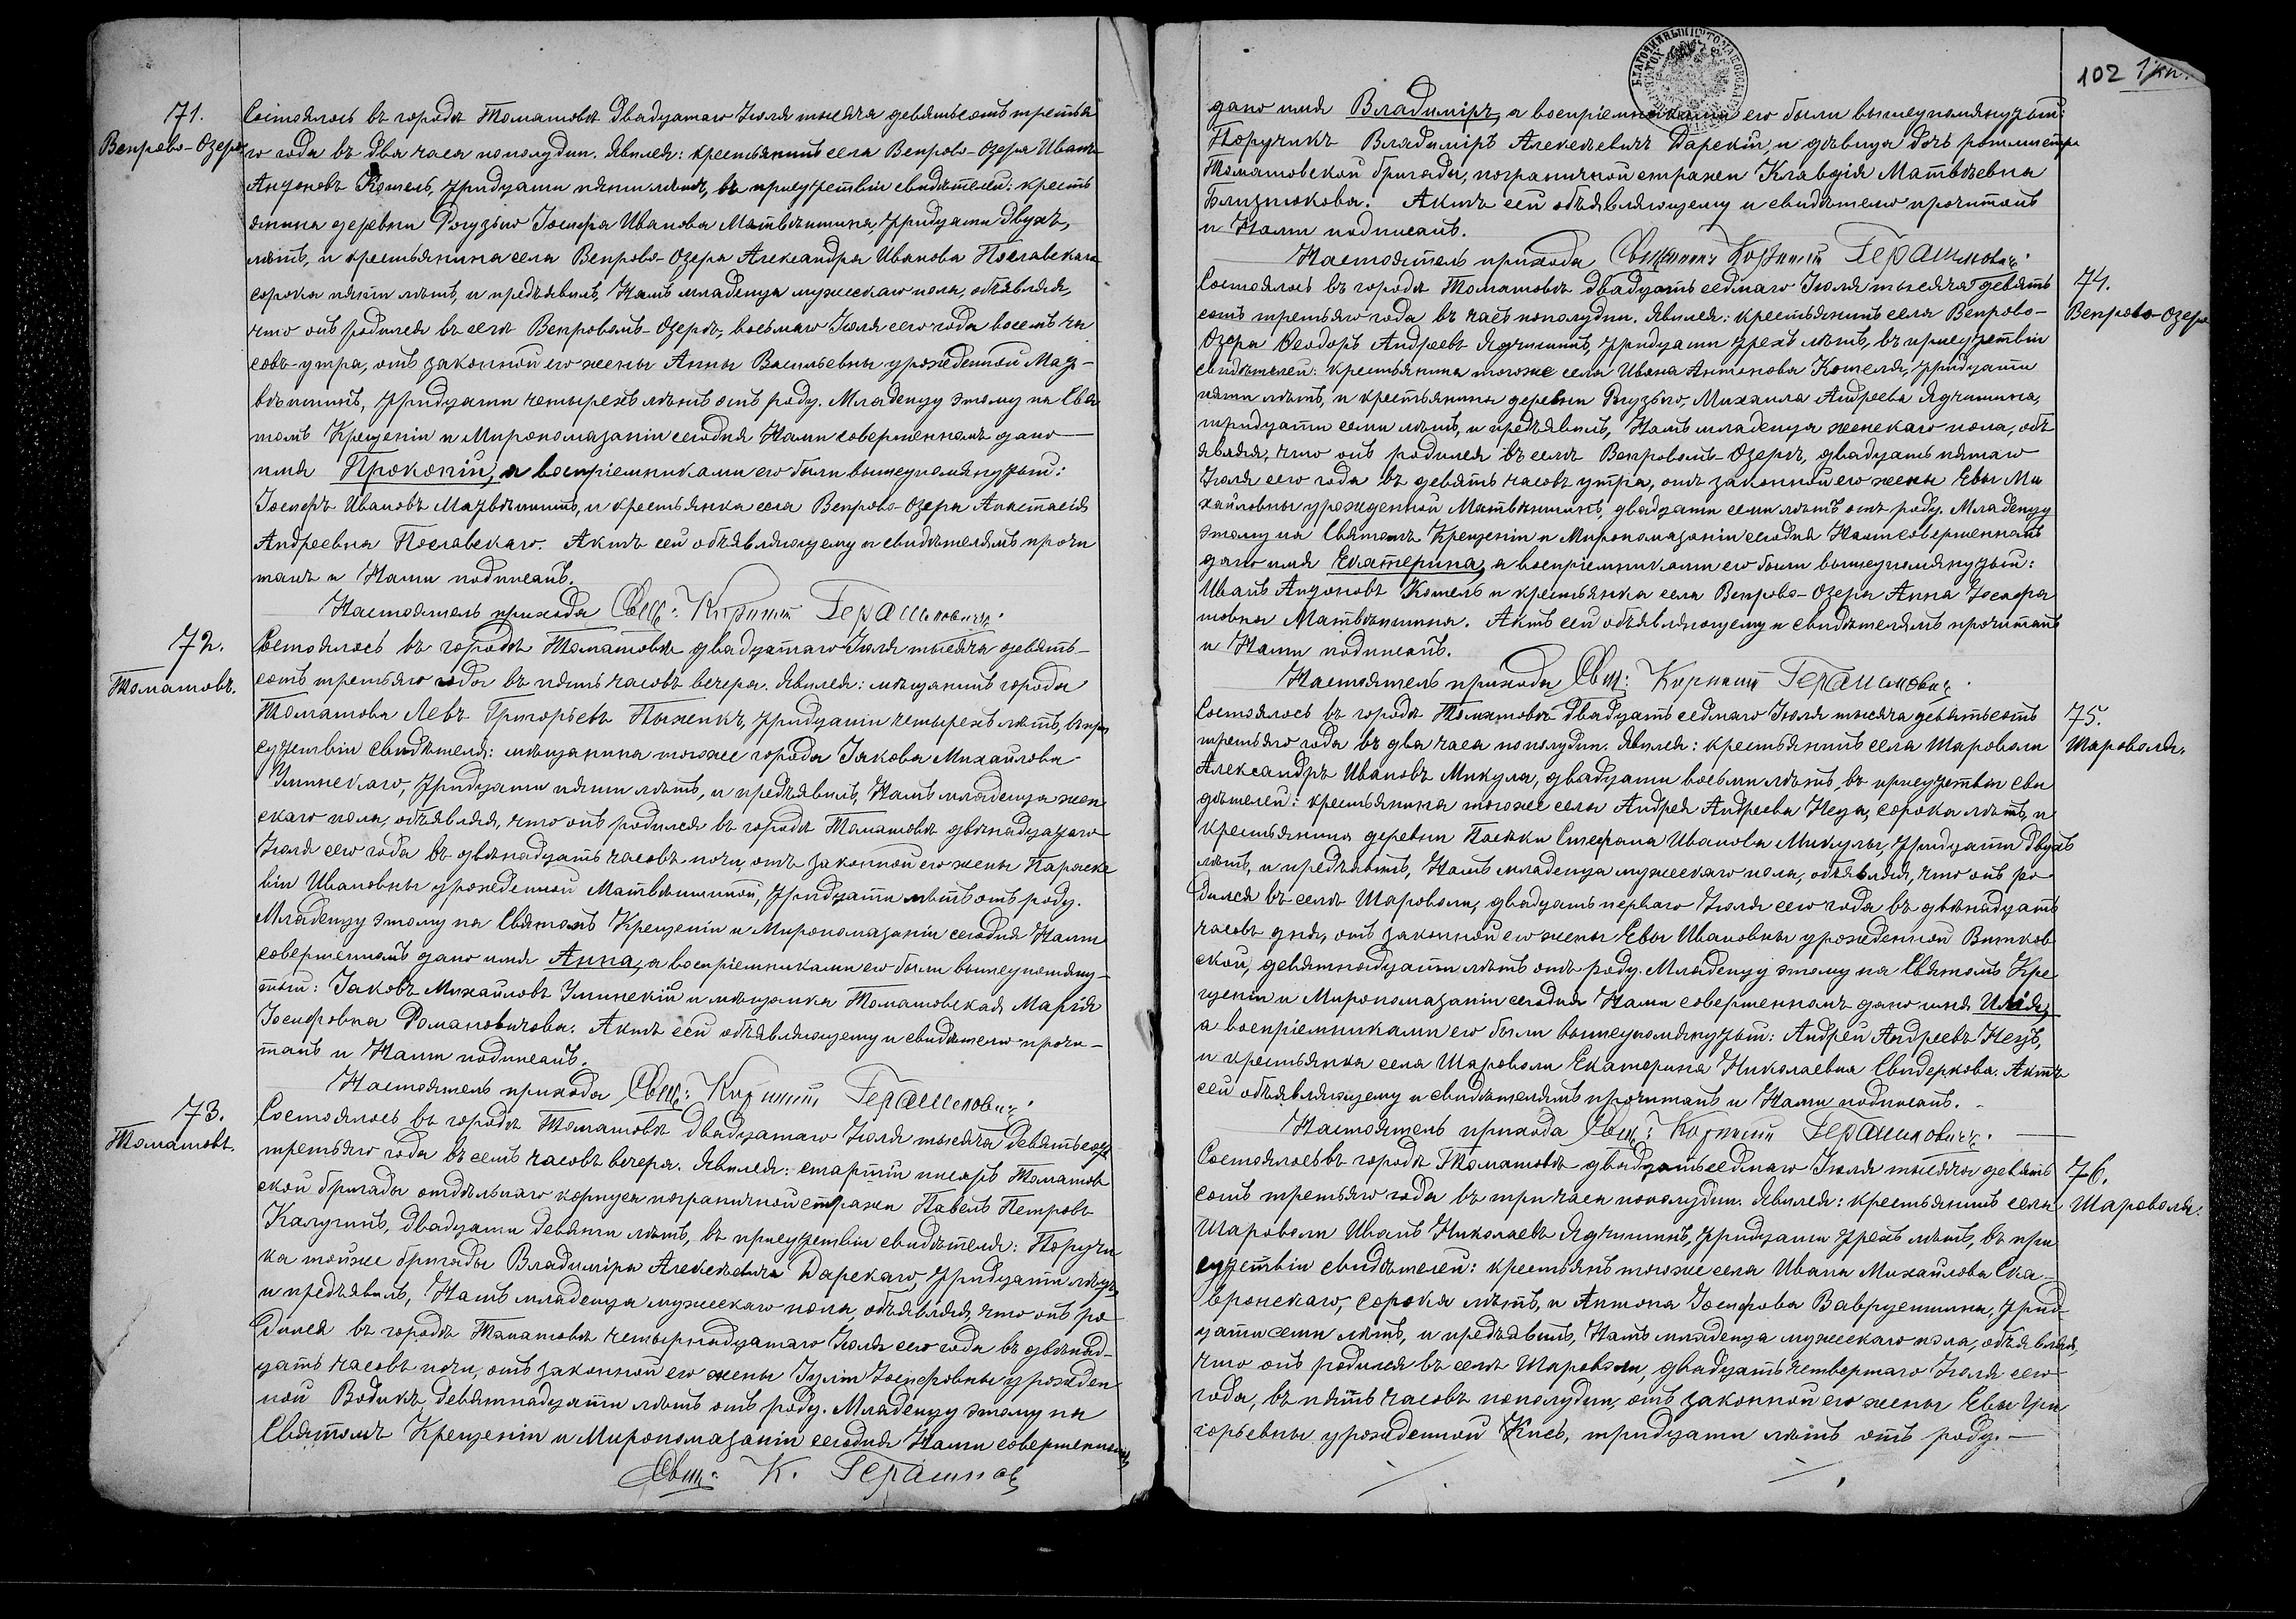 71.
Вепрево-Озеро
Состоялось въ городѣ Томашовѣ двадцатаго Іюля тысяча девятьсотъ третья
го года въ два часа пополудни. Явился: крестьянинъ села Вепрово-Озера Иванъ
Антоновъ Котель, тридцати пяти лѣтъ, въ присутствіи свидѣтелей: кресть
янина деревни Рогузьно Іосифа Иванова Матвѣишина, тридцати двухъ
лѣтъ, и крестьянина села Вепрово-Озера Александра Иванова Пославскаго
сорока пяти лѣтъ, и предъявилъ, Намъ младенца мужескаго пола, объявляя,
что онъ родился въ селѣ Вепровомъ-Озерѣ, восьмаго Іюля сего года восемь ча
совъ утра, отъ законной его жены Анны Васильевны урожденной Мат-
вѣишинъ, тридцати четырехъ лѣтъ отъ роду. Младенцу этому на Свя
томъ Крещеніи и Миропомазаніи сегодня Нами совершенномъ дано
имя Прокопій, а воспріемниками его были вышеупомянутый:
Іосифъ Ивановъ Матвѣишинъ, и крестьянка села Вепрово-Озера Анастасія
Андреевна Пославскаго. Актъ сей объявляющему и свидѣтелямъ прочи
танъ и Нами подписанъ.
Настоятель прихода Свщ: Корнилій Герашкович.
72.
Томашовъ.
Состоялось въ городѣ Томашовѣ двадцатаго Іюля тысяча девять-
сотъ третьяго года въ пять часовъ вечера. Явился: мѣщанинъ города
Томашова Левъ Григорьевъ тридцати четырехъ лѣтъ, въ при
сутствіи свидѣтеля: мѣщанина тогоже города Іакова Михайлова
тридцати пяти лѣтъ, и предъявилъ, Намъ младенца жен
скаго пола, объявляя, что онъ родился въ городѣ Томашовѣ двѣнадцатаго
Іюля сего года въ двѣнадцать часовъ ночи, отъ законной его жены Параске
віи Ивановны урожденной Матвѣишиной, тридцати лѣтъ отъ роду.
Младенцу этому на Святомъ Крещеніи и Миропомазаніи сегодня Нами
совершенномъ дано имя Анна, а воспріемниками его были вышеупомяну-
тый: Іаковъ Михайловъ и мѣщанка Томашовская Марія
Іосифовна Романовичова. Актъ сей объявляющему и свидѣтелю прочи-
танъ и Нами подписанъ.
Настоятель прихода Свщ: Корнилій Герашкович.
73.
Томашовъ.
Состоялось въ городѣ Томашовѣ двадцатаго Іюля тысяча девятьсотъ
третьяго года въ семь часовъ вечера. Явился: старшій писарь Томашов
ской бригады отдѣльнаго корпуса пограничной стражи Павелъ Петровъ
Калугинъ, двадцати девяти лѣтъ, въ присутствіи свидѣтеля: Поручи
ка тойже бригады Владиміра Алексѣевича Царскаго, тридцати лѣтъ,
и предъявилъ, Намъ младенца мужескаго пола, объявляя, что онъ ро
дился въ городѣ Томашовѣ четырнадцатаго Іюля сего года въ двѣнад-
цать часовъ ночи, отъ законной его жены Іуліи Іосифовны урожден
ной Водикъ, девятнадцати лѣтъ отъ роду. Младенцу этому на
Святомъ Крещеніи и Миропомазаніи сегодня Нами совершенномъ
Свщ: К. Герашков
102
дано имя Владиміръ, а воспріемниками его были вышеупомянутый:
Поручикъ Владиміръ Алексѣевичъ Царскій, и дѣвица дочь ротмистра
Томашовской бригады, пограничной стражи Клавдія Матвѣевна
Близнюкова. Актъ сей объявляющему и свидѣтелю прочитанъ
и Нами подписанъ.
Настоятель прихода Священникъ Корнилій Герашкович.
74.
Вепрово-Озеро
Состоялось въ городѣ Томашовѣ двадцать седмаго Іюля тысяча девять
сотъ третьяго года въ часъ пополудни. Явился: крестьянинъ села Вепрово-
Озера Ѳеодоръ Андреевъ Ядчишинъ, тридцати трехъ лѣтъ, въ присутствіи
свидѣтелей: крестьянина тогоже села Ивана Антонова Котеля, тридцати
пяти лѣтъ, и крестьянина деревни Рогузьно, Михаила Андреева Ядчишина,
тридцати семи лѣтъ, и предъявилъ, Намъ младенца женскаго пола, объ
являя, что онъ родился въ селѣ Вепровомъ-Озерѣ, двадцать пятаго
Іюля сего года въ девять часовъ утра, отъ законной его жены Евы Ми
хайловны урожденной Матвѣишинъ, двадцати семи лѣтъ отъ роду. Младенцу
этому на Святомъ Крещеніи и Миропомазаніи сегодня Нами совершенномъ
дано имя Екатерина, а воспріемниками его были вышеупомянутый:
Иванъ Антоновъ Котель и крестьянка села Вепрово-Озера Анна
Матвѣишина. Актъ сей объявляющему и свидѣтелямъ прочитанъ
и Нами подписанъ.
Настоятель прихода Свщ: Корнилій Герашкович.
75.
Шароволя.
Состоялось въ городѣ Томашовѣ двадцать седмаго Іюля тысяча девятьсотъ
третьяго года въ два часа пополудни. Явился: крестьянинъ села Шароволи
Александръ Ивановъ Микула, двадцати восьми лѣтъ, въ присутствіи сви
дѣтелей: крестьянина тогоже села Андрея Андреева Неца, сорока лѣтъ, и
крестьянина деревни Пасѣки Стефана Иванова Микулы, тридцати двухъ
лѣтъ, и предъявилъ, Намъ младенца мужескаго пола, объявляя, что онъ ро
дился въ селѣ Шароволи, двадцать перваго Іюля сего года въ двѣнадцать
часовъ дня, отъ законной его жены Евы Ивановны урожденной Витков
ской, девятнадцати лѣтъ отъ роду. Младенцу этому на Святомъ Кре
щеніи и Миропомазаніи сегодня Нами совершенномъ дано имя Илія,
а воспріемниками его были вышеупомянутый: Андрей Андреевъ Нецъ,
и крестьянка села Шароволи Екатерина Николаевна Свидеркова. Актъ
сей объявляющему и свидѣтелямъ прочитанъ и Нами подписанъ.
Настоятель прихода Свщ: Корнилій Герашкович.
76.
Шароволя.
Состоялось въ городѣ Томашовѣ двадцать седмаго Іюля тысяча девять
сотъ третьяго года въ три часа пополудни. Явился: крестьянинъ села
Шароволи Иванъ Николаевъ Ядчишинъ, тридцати трехъ лѣтъ, въ при
сутствіи свидѣтелей: крестьянъ тогоже села Ивана Михайлова Ска-
вронскаго, сорока лѣтъ, и Антона Іосифова Ваврусишина, трид
цати семи лѣтъ, и предъявилъ, Намъ младенца мужескаго пола, объявляя,
что онъ родился въ селѣ Шароволи, двадцать четвертаго Іюля сего
года, въ пять часовъ пополудни, отъ законной его жены Евы Гри
горьевны урожденной Кисъ, тридцати лѣтъ отъ роду.